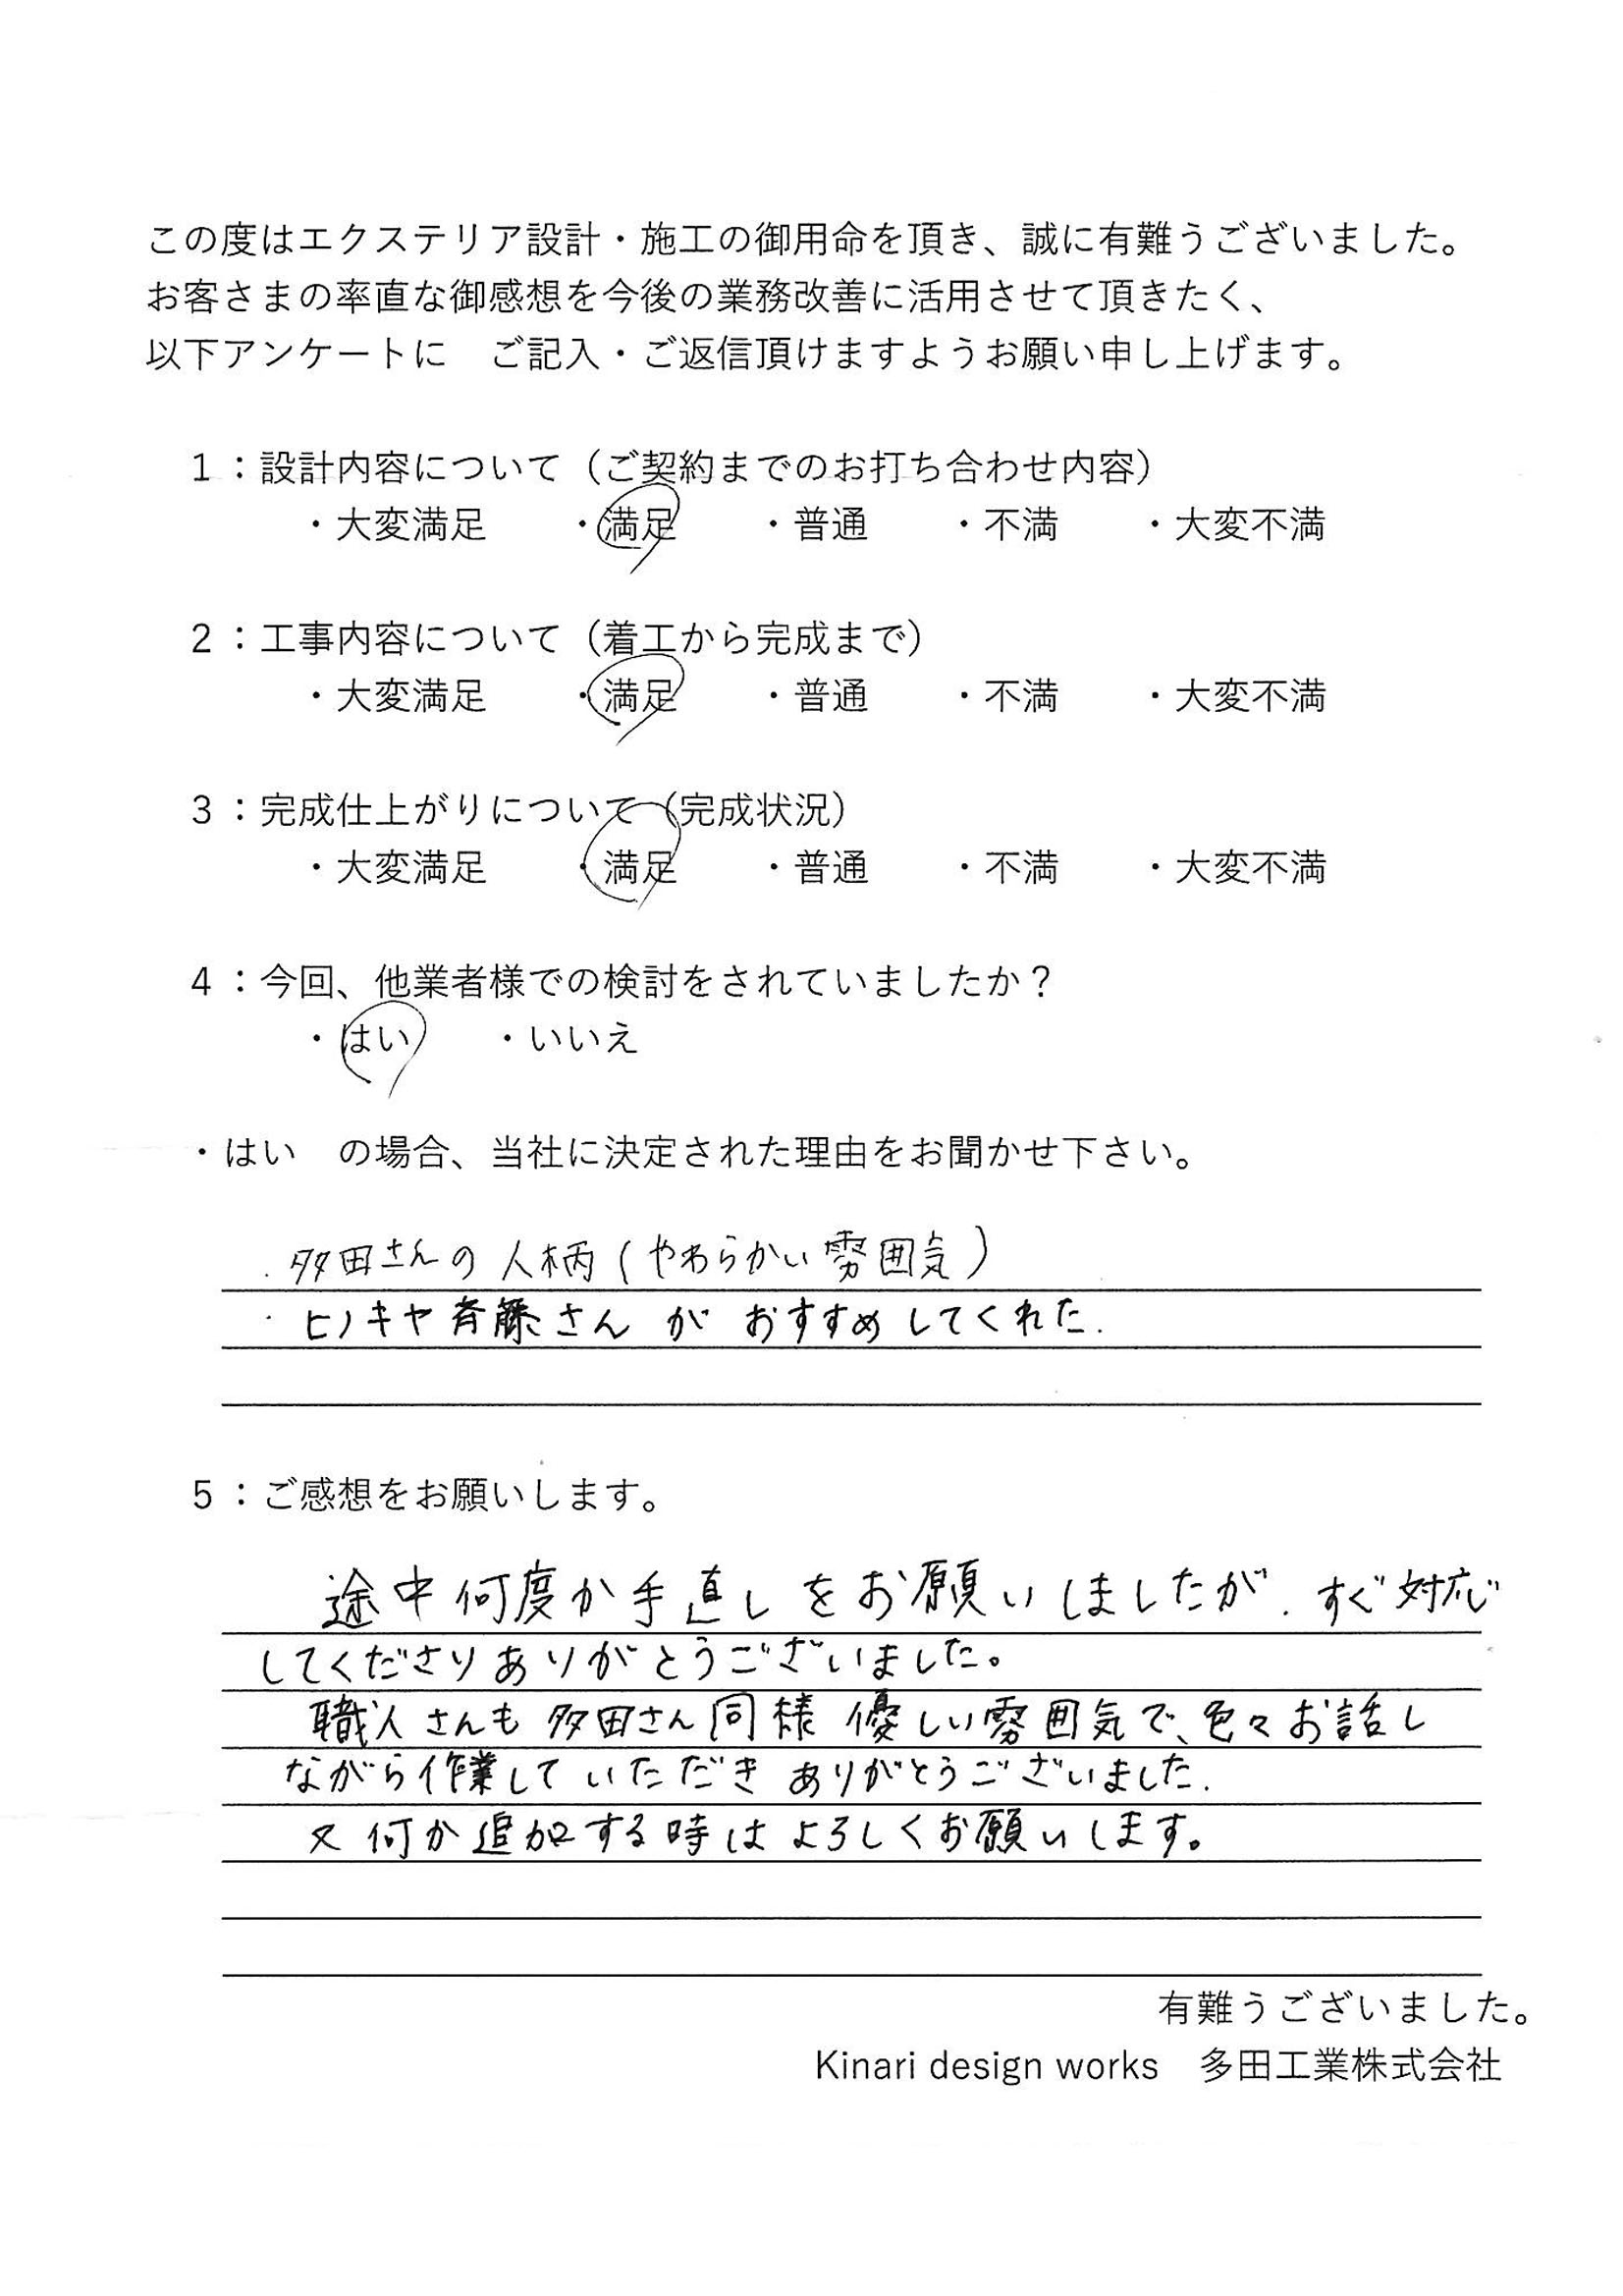 この度はエクステリア設計・施工の御用命を頂き、誠に有難うございました。
お客さまの率直な御感想を今後の業務改善に活用させて頂きたく、
以下アンケートに　ご記入・ご返信頂けますようお願い申し上げます。
1：設計内容について（ご契約までのお打ち合わせ内容）
・大変満足　・満足　・普通　・不満　・大変不満
2：工事内容について（着工から完成まで）
・大変満足　・満足　・普通　・不満　・大変不満
3：完成仕上がりについて（完成状況）
・大変満足　・満足　・普通　・不満　・大変不満
4：今回、他業者様での検討をされていましたか？
・はい　・いいえ
・はい　の場合、当社に決定された理由をお聞かせ下さい。
・多田さんの人柄（やわらかい雰囲気）
・ヒノキヤ斉藤さんがおすすめしてくれた.
5：ご感想をお願いします。
途中何度か手直しをお願いしましたが、すぐ対応
してくださりありがとうございました。
職人さんも多田さん同様優しい雰囲気で、色々お話し
ながら作業していただきありがとうございました.
又何か追加する時はよろしくお願いします。
有難うございました。
Kinari design works　多田工業株式会社